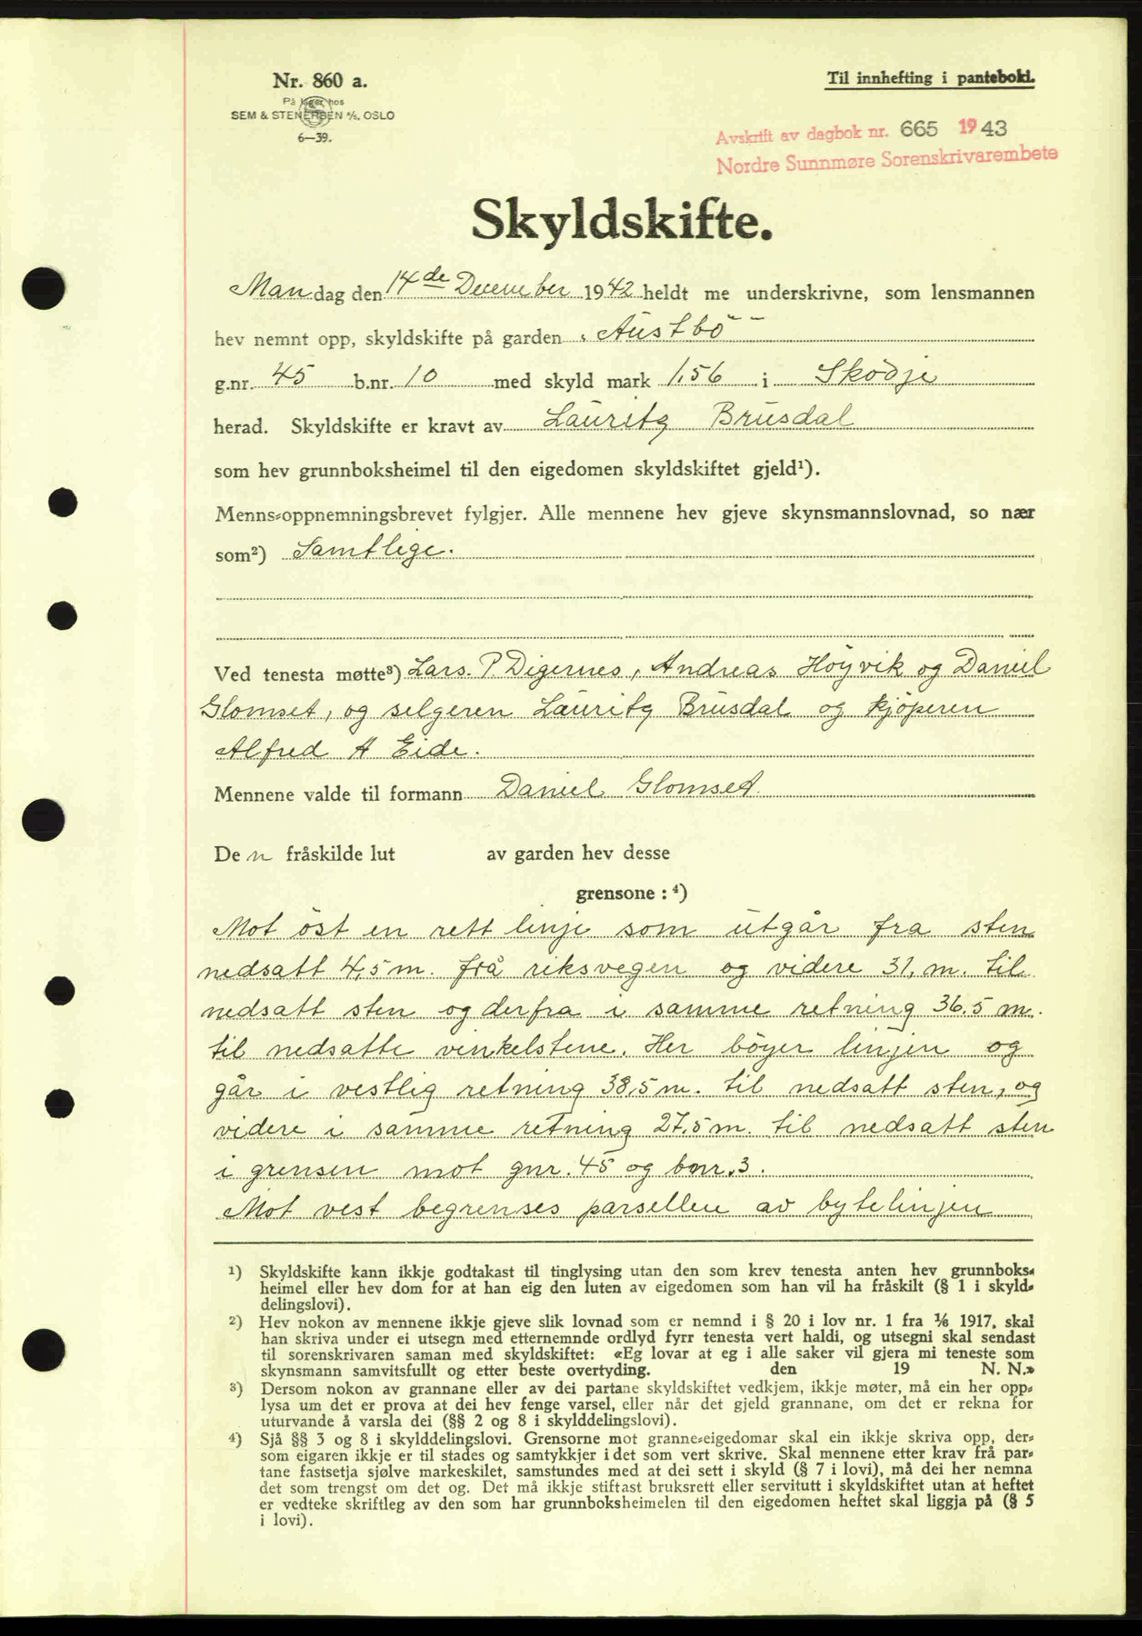 Nr. 860 a.
På lager hos
SEM & STENERSEN A/S, OSLO
6—39.
Til innhefting i pantebok.
Avskrift av dagbok nr. 665 1943
Nordre Sunnmøre Sorenskrivarembete
Skyldskifte.
Mandag den 14de December 1942 heldt me underskrivne, som lensmannen
hev nemnt opp, skyldskifte på garden „Austbö"
g.nr. 45 b.nr. 10 med skyld mark 1,56 i Skodje
herad. Skyldskifte er kravt av Lauritz Brusdal
som hev grunnboksheimel til den eigedomen skyldskiftet gjeld¹).
Menns-oppnemningsbrevet fylgjer. Alle mennene hev gjeve skynsmannslovnad, so nær
som²) Samtlige.
Ved tenesta møtte³) Lars. P. Digernes, Andreas Höyvik og Daniel
Glomset, og selgeren Lauritz Brusdal og kjöperen
Alfred A Eide.
Mennene valde til formann Daniel Glomset
De n fråskilde lut av garden hev desse
grensone : ⁴)
Mot öst en rett linje som utgår fra sten
nedsatt 4,5 m. frå riksvegen og videre 31, m. til
nedsatt sten og derfra i samme retning 36.5 m.
til nedsatte vinkelstene. Her böyer linjen og
går i vestlig retning 38,5 m. til nedsatt sten, og
videre i samme retning 27,5 m. til nedsatt sten
i grensen mot gnr. 45 og bnr. 3.
Mot vest begrenses parsellen av bytelinjen
¹) Skyldskifte kann ikkje godtakast til tinglysing utan den som krev tenesta anten hev grunnboks-
heimel eller hev dom for at han eig den luten av eigedomen som han vil ha fråskilt (§ 1 i skyld-
delingslovi).
²) Hev nokon av mennene ikkje gjeve slik lovnad som er nemnd i § 20 i lov nr. 1 fra 1/6 1917, skal
han skriva under ei utsegn med etternemnde ordlyd fyrr tenesta vert haldi, og utsegni skal sendast
til sorenskrivaren saman med skyldskiftet: «Eg lovar at eg i alle saker vil gjera mi teneste som
skynsmann samvitsfullt og etter beste overtyding. den 19 N. N.»
³) Dersom nokon av grannane eller av dei partane skyldskiftet vedkjem, ikkje møter, må ein her opp-
lysa um det er prova at dei hev fenge varsel, eller når det gjeld grannane, om det er rekna for
uturvande å varsla dei (§§ 2 og 8 i skylddelingslovi).
⁴) Sjå §§ 3 og 8 i skylddelingslovi. Grensorne mot granne-eigedomar skal ein ikkje skriva opp, der-
som eigaren ikkje er til stades og samtykkjer i det som vert skrive. Skal mennene etter krav frå par-
tane fastsetja sjølve markeskilet, samstundes med at dei sett i skyld (§ 7 i lovi), må dei her nemna
det som trengst om det og. Det må ikkje stiftast bruksrett eller servitutt i skyldskiftet utan at heftet
er vedteke skriftleg av den som har grunnboksheimelen til den eigedomen heftet skal liggja på (§ 5
i lovi).